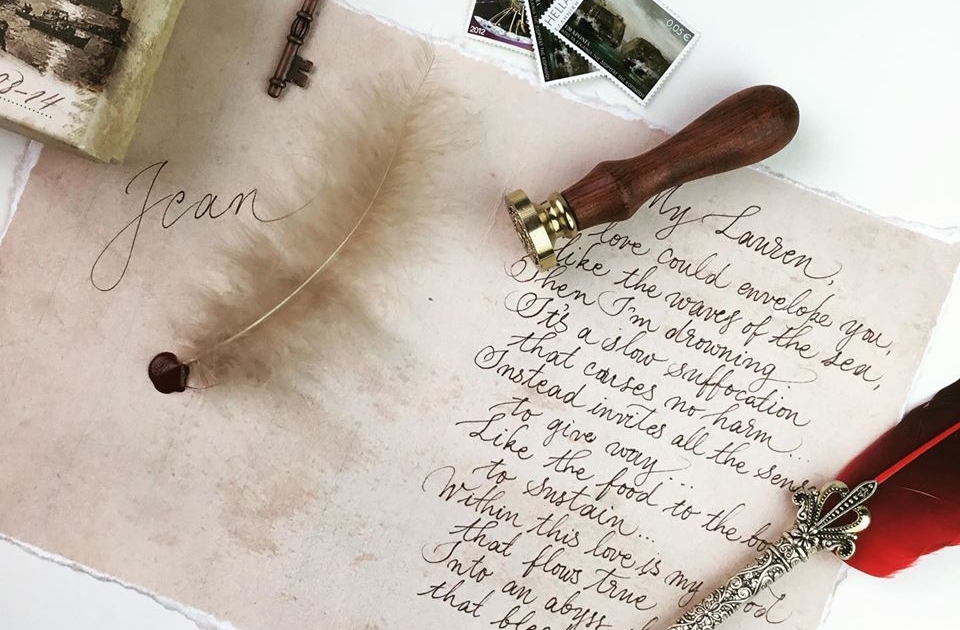 Jean
My Lauren,
love could envelope you,
like the waves of the sea,
Then I'm drowning.
It's a slow suffocation
that causes no harm...
Instead invites all the
to give way...
Like the food to the
to sustain...
Within this love is my
that flows true
Into an abyss
that
2012
0.05€